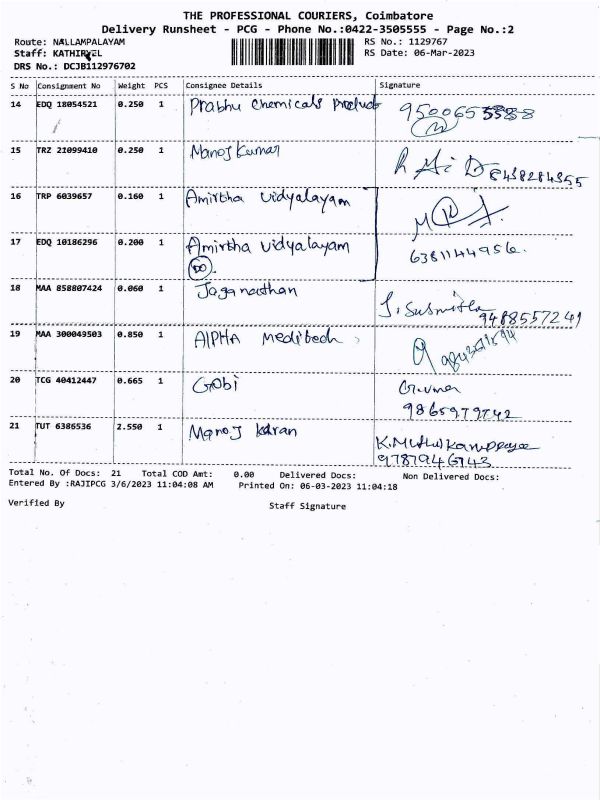 THE PROFESSIONAL COURIERS, Coimbatore
Delivery Runsheet - PCG - Phone No.:0422-3505555 - Page No.:2
Route: NALLAMPALAYAM RS No.: 1129767
Staff: KATHIRVEL RS Date: 06-Mar-2023
DRS No.: DCJB112976702
S No Consignment No Weight PCS Consignee Details Signature
14 EDQ 18054521 0.250 1 Prabhu Chemicals Products 95006
15 TRZ 21099410 0.250 1 Manoj Kumar 8438284355
16 TRP 6039657 0.160 1 Amirtha Vidyalayam
17 EDQ 10186296 0.200 1 Amirtha Vidyalayam 6381144956.
DO
18 MAA 858807424 0.060 1 Jaganathan J. Susmitha
9488557241
19 MAA 300049503 0.850 1 AlPHA Meditech
20 TCG 40412447 0.665 1 Gobi
9865979742
21 TUT 6386536 2.550 1 Manoj karan
9787946743
Total No. Of Docs: 21 Total COD Amt: 0.00 Delivered Docs: Non Delivered Docs:
Entered By :RAJIPCG 3/6/2023 11:04:08 AM Printed On: 06-03-2023 11:04:18
Verified By Staff Signature